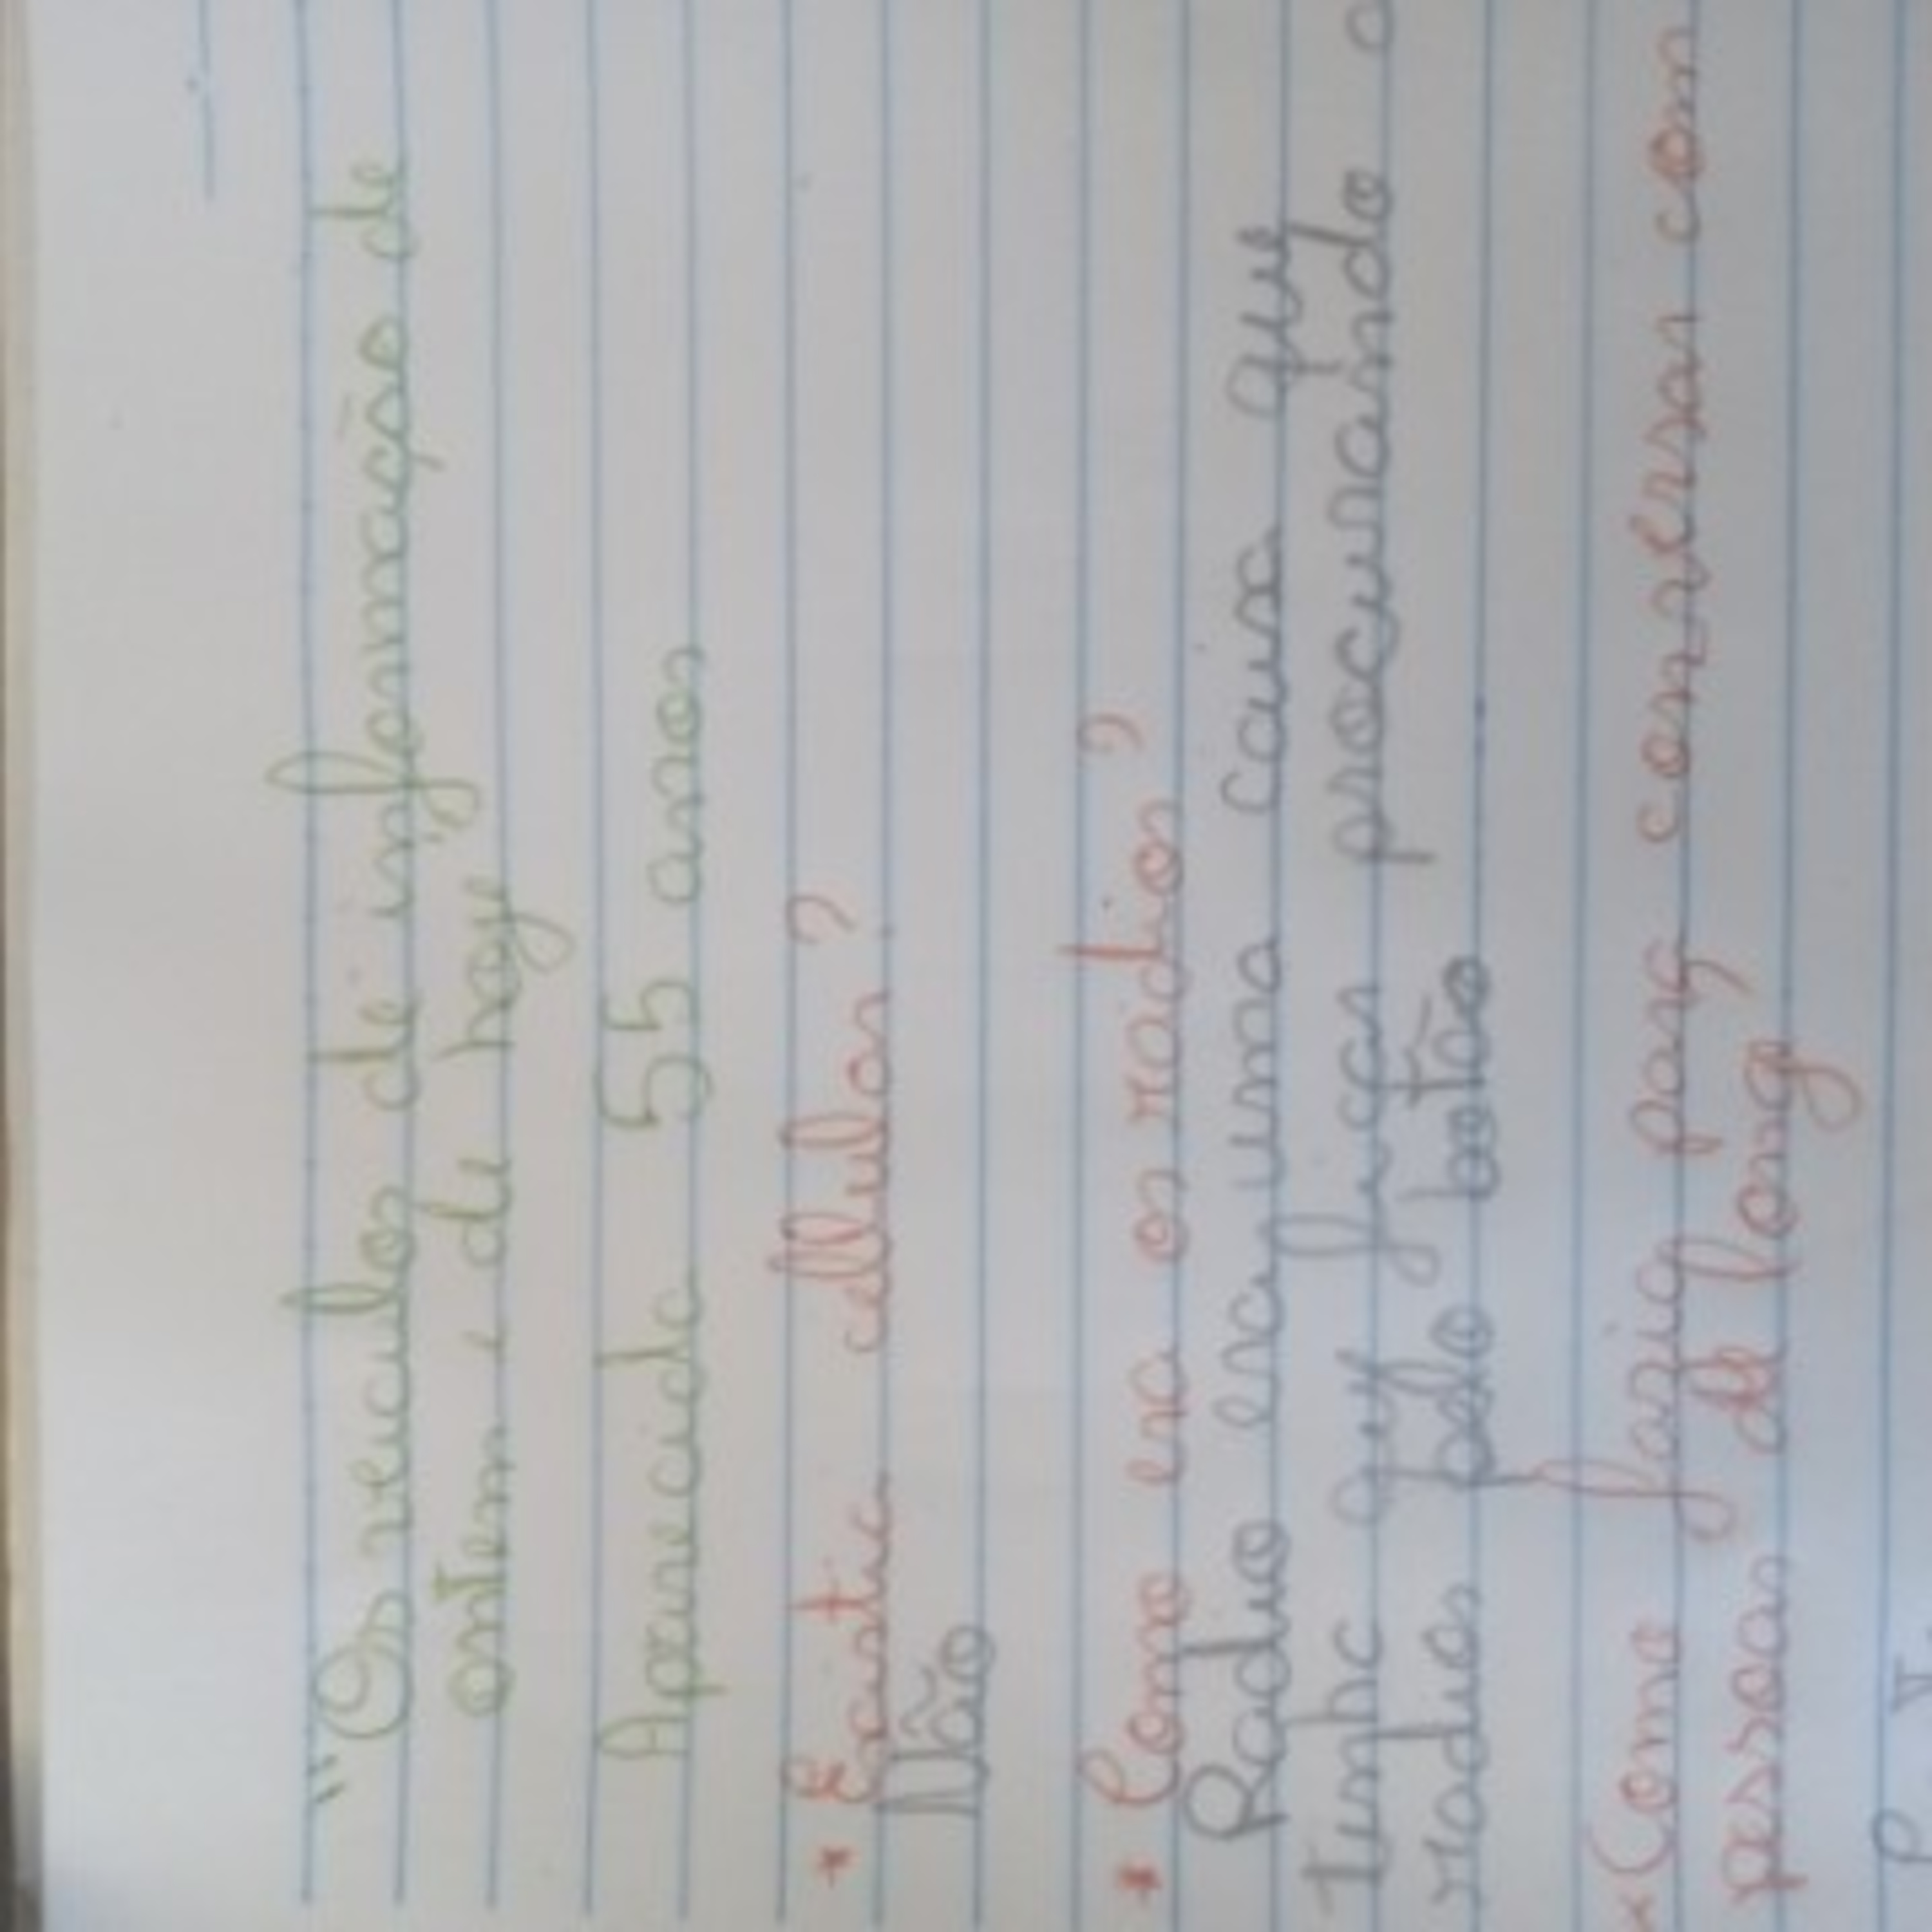 "Os veiculos de informação de
ontem e de hoy"
Aparecida 55 anos
* Existia cellulos?
Não
* Como era os rádios?
Radio era uma caixa que
tinha que ficar procurando o
radios pelo botão
* Como fazia para conversar com
pessoas de long